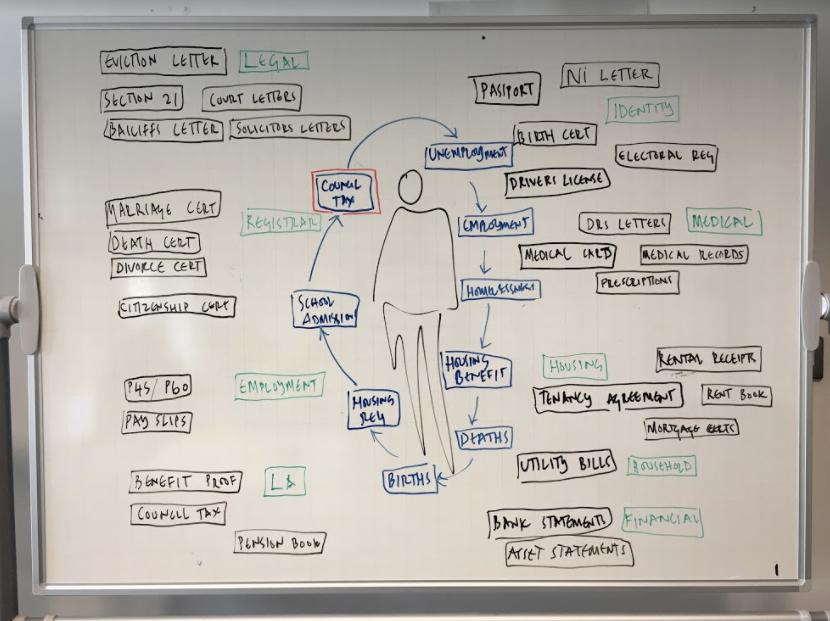 EVICTION LETTER
LEGAL
SECTION 21
COURT LETTERS
BAILIFFS LETTER
SOLICITORS LETTERS
PASSPORT
NI LETTER
IDENTITY
BIRTH CERT
ELECTORAL REG
DRIVERS LICENSE
UNEMPLOYMENT
COUNCIL
TAX
MARRIAGE CERT
REGISTRAR
DEATH CERT
DIVORCE CERT
CITIZENSHIP CERT
EMPLOYMENT
DRS LETTERS
MEDICAL
MEDICAL CARDS
MEDICAL RECORDS
PRESCRIPTIONS
HOMELESSNESS
SCHOOL
ADMISSION
HOUSING
BENEFIT
HOUSING
RENTAL RECEIPTS
TENANCY AGREEMENT
RENT BOOK
MORTGAGE CERTS
P45/P60
EMPLOYMENT
PAY SLIPS
HOUSING
REG
DEATHS
BIRTHS
UTILITY BILLS
HOUSEHOLD
BENEFIT PROOF
LA
COUNCIL TAX
PENSION BOOK
BANK STATEMENTS
FINANCIAL
ASSET STATEMENTS
1